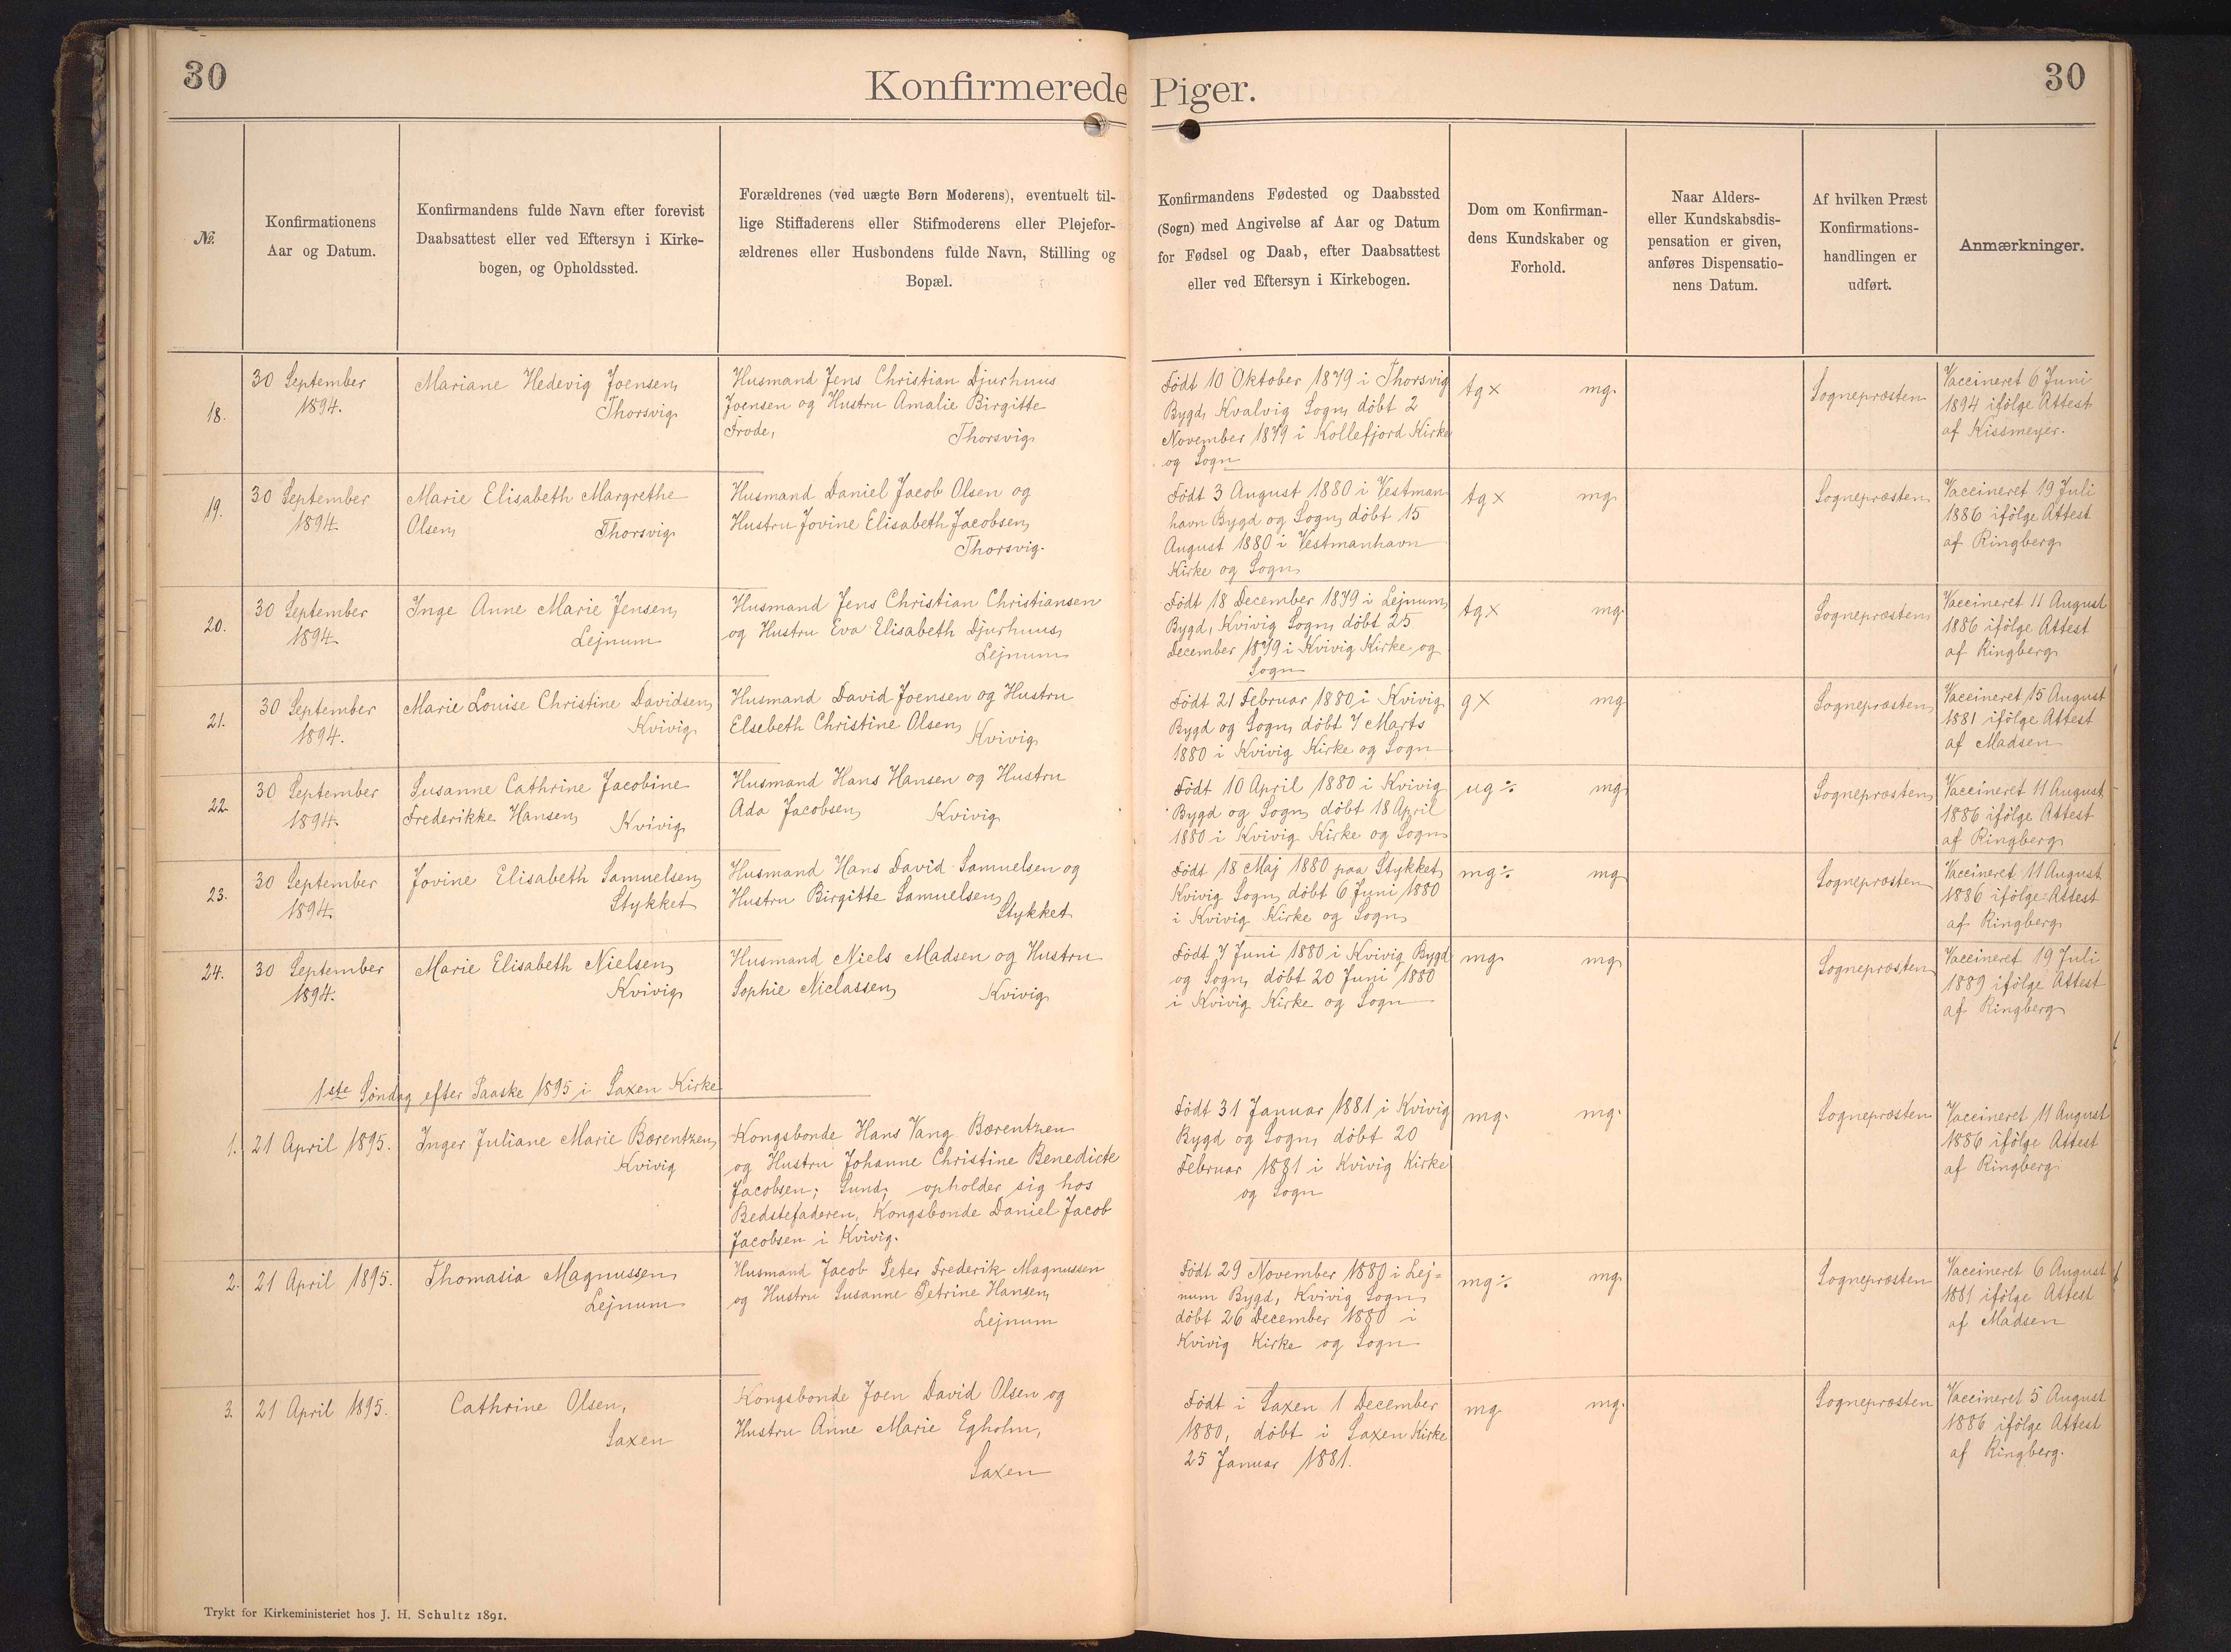 30
Konfirmerede Piger.
30
No.
Konfirmationens
Aar og Datum.
Konfirmandens fulde Navn efter forevist
Daabsattest eller ved Eftersyn i Kirke-
bogen, og Opholdssted.
Forældrenes (ved uægte Børn Moderens), eventuelt til-
lige Stiffaderens eller Stifmoderens eller Plejefor-
ældrenes eller Husbondens fulde Navn, Stilling og
Bopæl.
Konfirmandens Fødested og Daabssted
(Sogn) med Angivelse af Aar og Datum
for Fødsel og Daab, efter Daabsattest
eller ved Eftersyn i Kirkebogen.
Dom om Konfirman-
dens Kundskaber og
Forhold.
Naar Alders-
eller Kundskabsdis-
pensation er given,
anføres Dispensatio-
nens Datum.
Af hvilken Præst
Konfirmations-
handlingen er
udført.
Anmærkninger.
18.
30 September
1894.
Mariane Hedevig Joensen,
Thorsvig
Husmand Jens Christian Djurhuus
Joensen og Hustru Amalie Birgitte
Frode,
Thorsvig
Født 10 Oktober 1879 i Thorsvig
Bygd, Kvalvig Sogn, döbt 2
November 1879 i Kollefjord Kirke
og Sogn
tg× mg.
Sognepræsten
Vaccineret 6 Juni
1894 ifölge Attest
af Kissmeyer.
19.
30 September
1894.
Marie Elisabeth Margrethe
Olsen, Thorsvig
Husmand Daniel Jacob Olsen og
Hustru Jovine Elisabeth Jacobsen,
Thorsvig.
Født 3 August 1880 i Vestman
havn Bygd og Sogn, döbt 15
August 1880 i Vestmanhavn
Kirke og Sogn
tg× mg
Sognepræsten
Vaccineret 19 Juli
1886 ifölge Attest
af Ringberg
20.
30 September
1894.
Inge Anne Marie Jensen,
Lejnum
Husmand Jens Christian Christiansen
og Hustru Eva Elisabeth Djurhuus,
Lejnum
Født 18 December 1879 i Lejnum,
Bygd, Kvivig Sogn, döbt 25
December 1879 i Kvivig Kirke og
Sogn
tg× mg.
Sognepræsten
Vaccineret 11 August
1886 ifölge Attest
af Ringberg
21.
30 September
1894.
Marie Louise Christine Davidsen,
Kvivig
Husmand David Joensen og Hustru
Elsebeth Christine Olsen,
Kvivig
Født 21 Februar 1880 i Kvivig
Bygd og Sogn, döbt 7 Marts
1880 i Kvivig Kirke og Sogn
g× mg
Sognepræsten
Vaccineret 15 August
1881 ifölge Attest
af Madsen
22.
30 September
1894.
Susanne Cathrine Jacobine
Frederikke Hansen, Kvivig
Husmand Hans Hansen og Hustru
Ada Jacobsen, Kvivig
Født 10 April 1880 i Kvivig
Bygd og Sogn, döbt 18 April
1880 i Kvivig Kirke og Sogn
ug÷ mg
Sognepræsten
Vaccineret 11 August
1886 ifölge Attest
af Ringberg
23.
30 September
1894.
Jovine Elisabeth Samuelsen,
Stykket
Husmand Hans David Samuelsen og
Hustru Birgitte Samuelsen,
Stykket
Født 18 Maj 1880 paa Stykket,
Kvivig Sogn, döbt 6 Juni 1880
i Kvivig Kirke og Sogn
mg÷ mg
Sognepræsten
Vaccineret 11 August
1886 ifölge Attest
af Ringberg
24.
30 September
1894.
Marie Elisabeth Nielsen,
Kvivig
Husmand Niels Madsen og Hustru
Sophie Niclassen, Kvivig
Født 7 Juni 1880 i Kvivig Bygd
og Sogn, döbt 20 Juni 1880
i Kvivig Kirke og Sogn
mg mg
Sognepræsten
Vaccineret 19 Juli
1889 ifölge Attest
af Ringberg
1ste Søndag efter Paaske 1895 i Saxen Kirke
1.
21 April 1895.
Inger Juliane Marie Bærentzen,
Kvivig
Kongsbonde Hans Vang Bærentzen
og Hustru Johanne Christine Benedicte
Jacobsen; Sund; opholder sig hos
Bedstefaderen, Kongsbonde Daniel Jacob
Jacobsen i Kvivig.
Født 31 Januar 1881 i Kvivig
Bygd og Sogn, döbt 20
Februar 1881 i Kvivig Kirke
og Sogn
mg. mg.
Sognepræsten
Vaccineret 11 August
1886 ifölge Attest
af Ringberg
2.
21 April 1895.
Thomasia Magnussen,
Lejnum
Husmand Jacob Peter Frederik Magnussen
og Hustru Susanne Petrine Hansen,
Lejnum
Født 29 November 1880 i Lej=
num Bygd, Kvivig Sogn,
döbt 26 December 1880 i
Kvivig Kirke og Sogn
mg÷ mg.
Sognepræsten
Vaccineret 6 August
1881 ifölge Attest
af Madsen
3.
21 April 1895.
Cathrine Olsen,
Saxen
Kongsbonde Joen David Olsen og
Hustru Anne Marie Egholm,
Saxen
Født i Saxen 1 December
1880, döbt i Saxen Kirke
25 Januar 1881.
mg mg.
Sognepræsten
Vaccineret 5 August
1886 ifölge Attest
af Ringberg.
Trykt for Kirkeministeriet hos J. H. Schultz 1891.